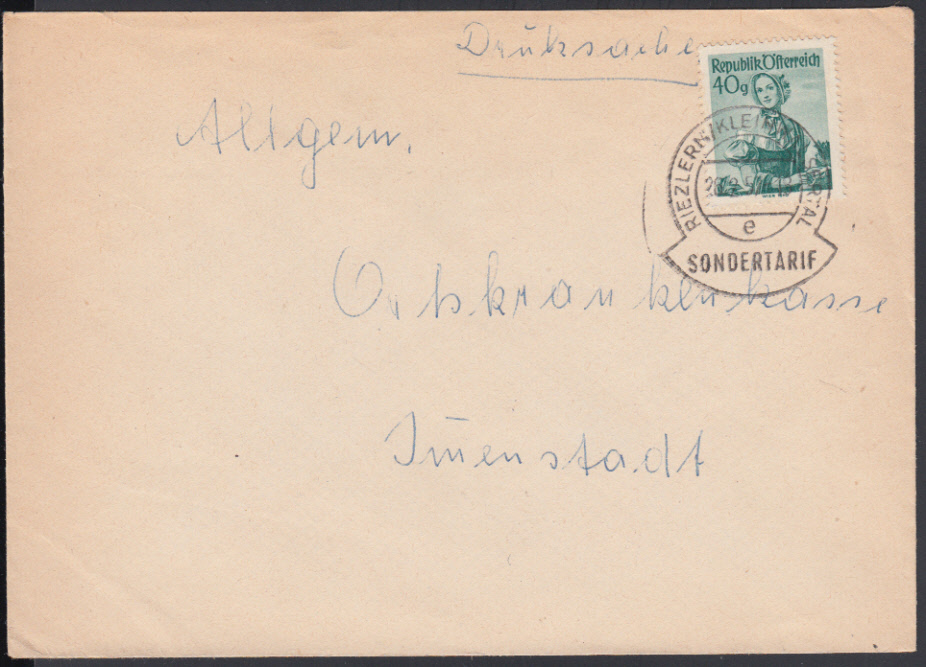 Druksache
Republik Österreich
40g
RIEZLERN/KLEIN
RTAL
e
SONDERTARIF
Allgem.
Ortskrankenkasse
Immenstadt